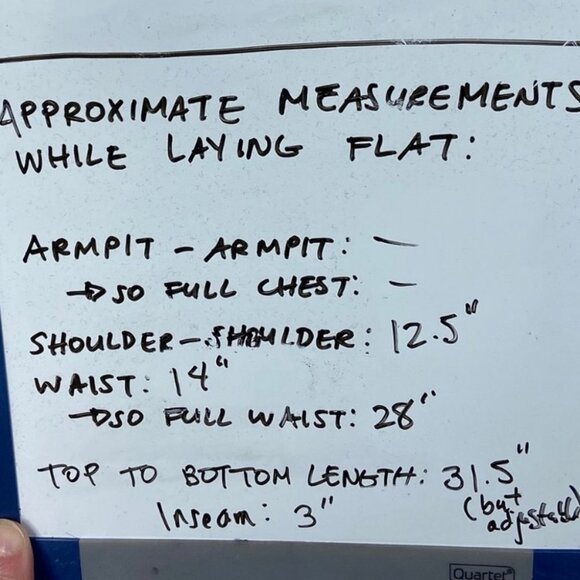 APPROXIMATE MEASUREMENTS
WHILE LAYING FLAT:
ARMPIT - ARMPIT: —
→ SO FULL CHEST: —
SHOULDER-SHOULDER: 12.5"
WAIST: 14"
→ SO FULL WAIST: 28"
TOP TO BOTTOM LENGTH: 31.5"
(but
adjustable)
Inseam: 3"
Quartet®